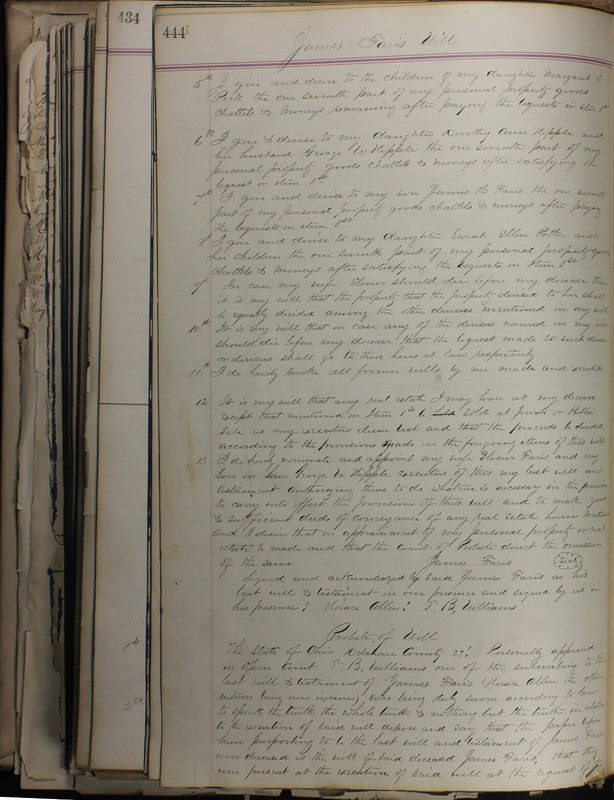 434
444
James Faris Will
5th I give and devise to the children of my daughter Margaret E
Peck the one seventh part of my personal property goods
chattels & moneys remaining after paying the bequests in item 1st
6th I give & devise to my daughter Dorothy Ann Hipple and
her husband George W Hipple the one seventh part of my
personal property goods chattels & moneys after satisfying the
bequest in item 1st
7th I give and devise to my son James H Faris the one seventh
part of my personal property goods chattels & moneys after paying
the bequests in item 1st
8th I give and devise to my daughter Sarah Ellen Potter and
her children the one seventh part of my personal property goods
chattels & moneys after satisfying the bequests in Item 1st
9th In case my wife Elenor should die before my decease then
it is my will that the property that the property devised to her shall
be equally divided among the other devisees mentioned in my will
10th It is my will that in case any of the devisees named in my will
should die before my decease that the bequest made to such devisee
or devisees shall go to their heirs at law respectively
11th I do hereby revoke all former wills by me made and executed
12 It is my will that any real estate I may have at my decease
except that mentioned in Item 1st be sold at private or Public
Sale as my executors deem best and that the proceeds be divided
according to the provisions made in the foregoing items of this will
13 I do hereby nominate and appoint my wife Elenor Faris and my
Son in law George W Hipple executors of this my last will and
testament authorizing them to do whatever is necessary in the premises
to carry into effect the provisions of this will and to make good
& sufficient deeds of conveyance of any real Estate herein
And I desire that no appraisement of my personal property or real
estate be made and that the court of Probate direct the omission
of the same James Faris Seal
Signed and acknowledged by said James Faris as his
last will & testament in our presence and signed by us in
his presence! Horace Allen! T. B. Williams
Probate of Will
The State of Ohio Delaware County SS! Personally appeared
in Open Court T. B. Williams one of the subscribing to the
last will & testament of James Faris (Horace Allen the other
witness being now insane), who being duly sworn according to law
to speak the truth the whole truth & nothing but the truth in relation
to the execution of said will depose and say that the paper before
him purporting to be the last will and testament of James Faris
now deceased is the will of said deceased James Faris, that they
were present at the execution of said will at the request of
1st
2d